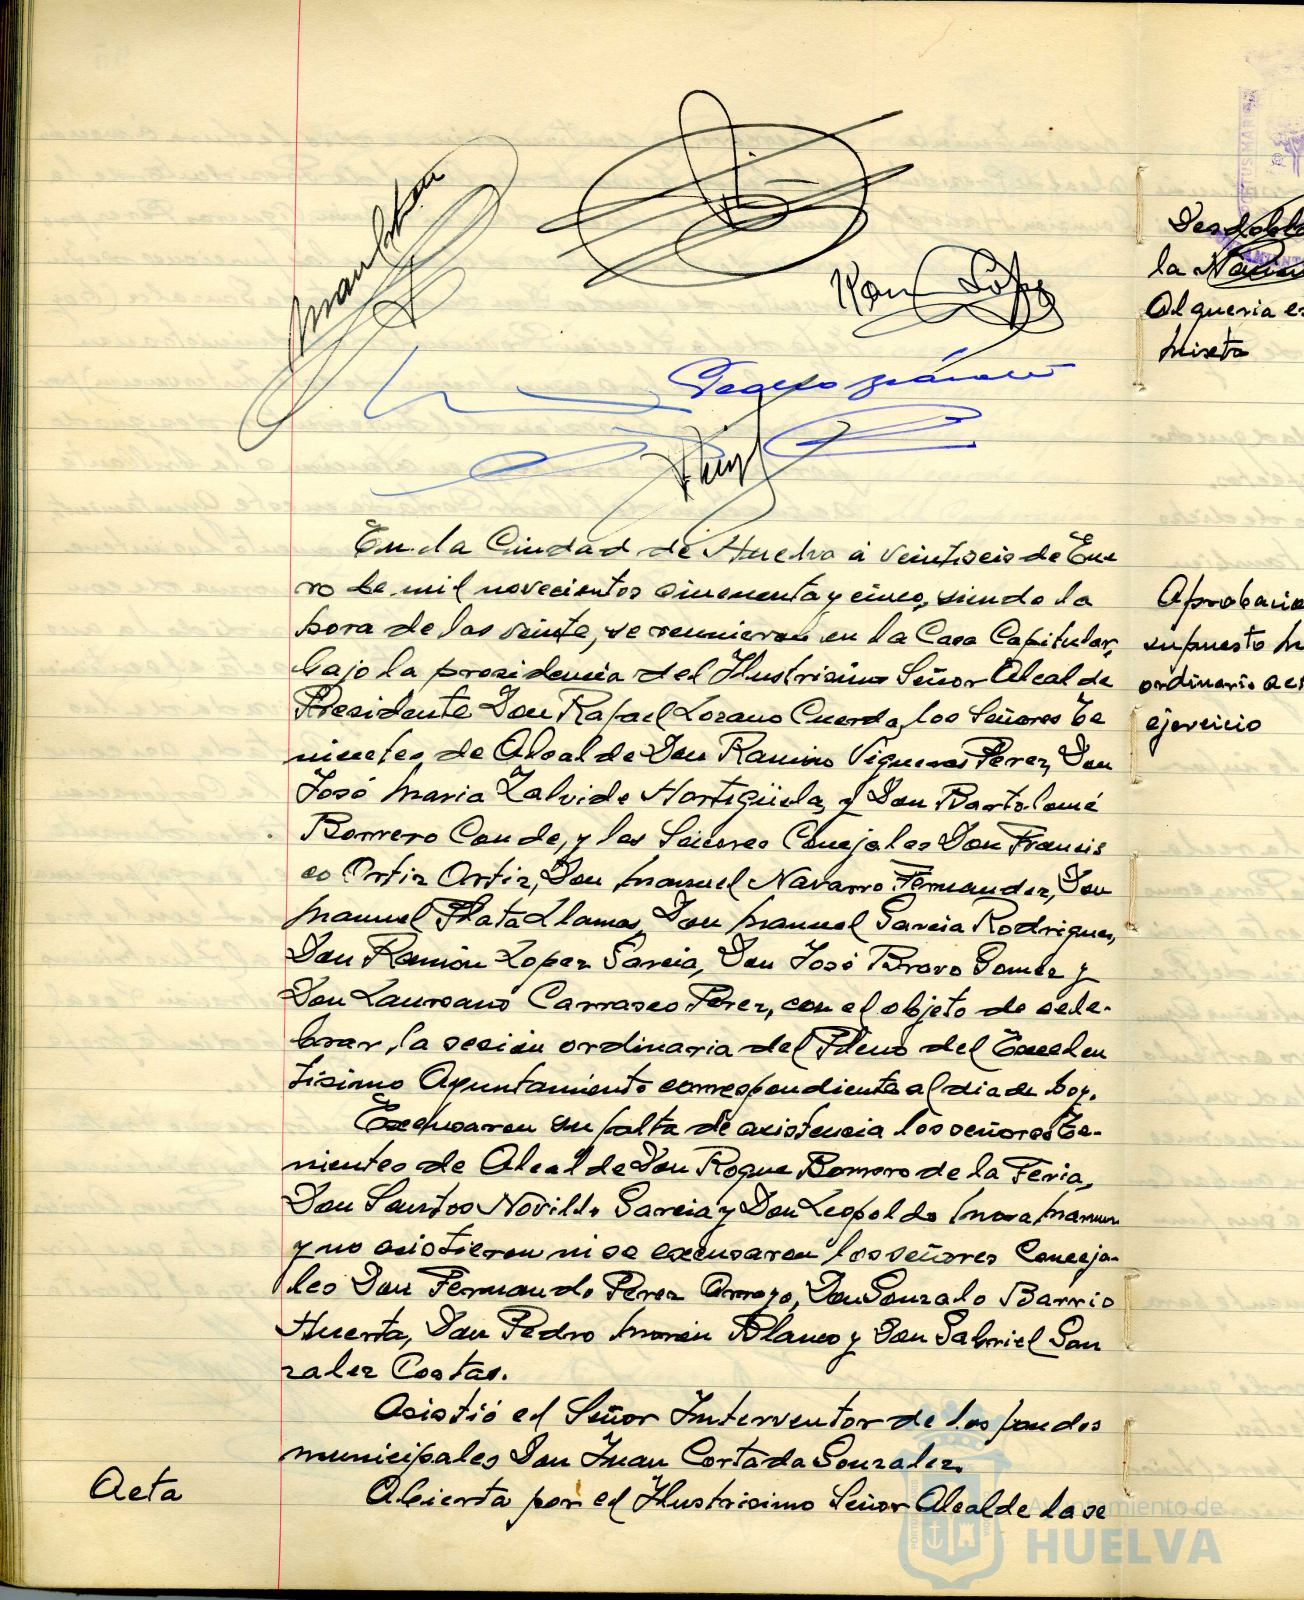 Ramón López
En la Ciudad de Huelva a veintiseis de Ene
ro de mil novecientos cincuenta y cinco, siendo la
hora de las veinte, se reunieron en la Casa Capitular,
bajo la presidencia del Ilustrisimo Señor Alcalde
Presidente Don Rafael Lozano Cuerda, los Señores Te
nientes de Alcalde Don Ramiro Vigueras Perez, Don
José Maria Zalvide Hortigüela, y Don Bartolomé
Borrero Conde, y los Señores Concejales Don Francis
co Ortiz Ortiz, Don Manuel Navarro Fernandez, Don
Manuel Plata Llamas, Don Manuel Garcia Rodriguez,
Don Ramón Lopez Garcia, Don José Bravo Gomez y
Don Laureano Carrasco Perez, con el objeto de cele-
brar, la sesión ordinaria del Pleno del Excelen
tisimo Ayuntamiento correspondiente al dia de hoy.
Excusaron su falta de asistencia los señores Te-
nientes de Alcalde Don Roque Borrero de la Feria,
Don Santos Novillo Garcia y Don Leopoldo Mora
y no asistieron ni se excusaron los señores Conceja-
les Don Fernando Perez Arroyo, Don Gonzalo Barrio
Huerta, Don Pedro Morón Blanco y Don Gabriel Gon
zalez Costas.
Asistió el Señor Interventor de los fondos
municipales Don Juan Cortada Gonzalez.
Acta
Abierta por el Ilustrisimo Señor Alcalde la se
la
Alqueria
Aprobacio
supuesto
ordinario
ejercicio
Ayuntamiento de
HUELVA